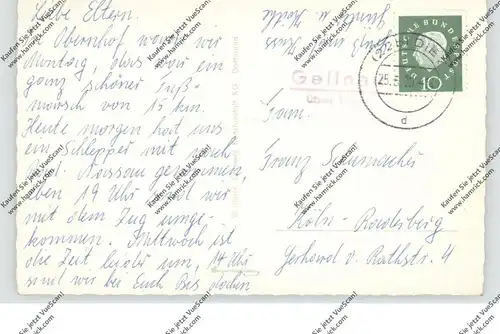 Liebe Eltern.
Obernhof waren wir
Montag, das war ein
ganz schöner Fuß-
marsch von 15 km.
Heute morgen hat uns
ein Schlepper mit nach
Bad Nassau genommen,
eben 19 Uhr sind wir
mit dem Zug ange-
kommen. Mittwoch ist
die Zeit leider um, 14 Uhr
sind wir bei Euch Bis dahin
Gruß und Kuss
DEUTSCHE BUNDESPOST
10
Gelln
über
25.5.
d
Fam.
Franz Schumacher
Köln-Raderberg
Gerhard v. Rathstr. 4
Kaufen Sie jetzt VueScan!
www.hamrick.com